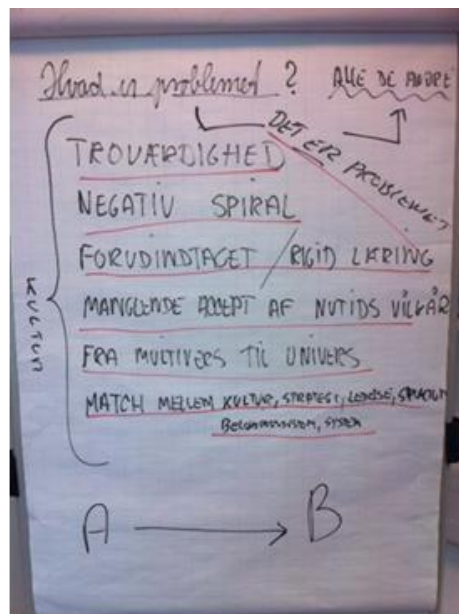 Hvad er problemet? ALLE DE ANDRE
DET ER PROBLEMET
TROVÆRDIGHED
NEGATIV SPIRAL
FORUDINDTAGET / RIGID LÆRING
MANGLENDE ACCEPT AF NUTIDS VILKÅR
FRA MULTIVERS TIL UNIVERS
MATCH MELLEM KULTUR, STRATEGI, LEDELSE,
SYSTEM
KULTUR
A B